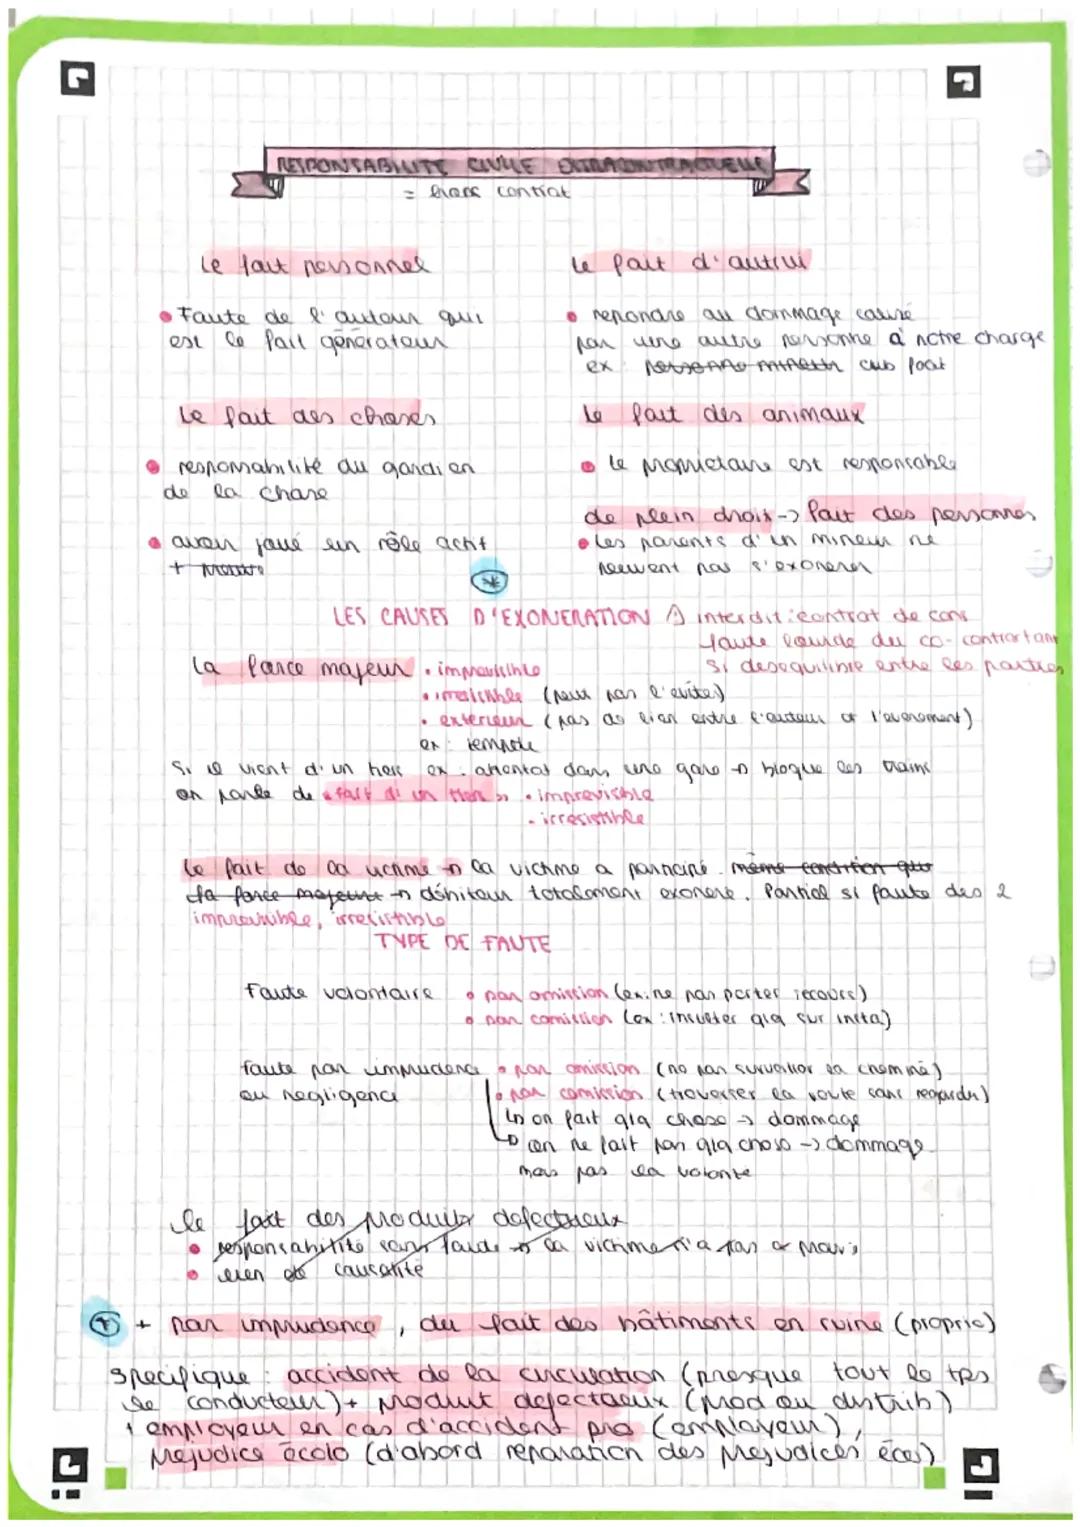 RESPONSABILITE CIVILE EXTRACONTRACTUELLE
= hors contrat
Le fait personnel
Le fait d'autrui
• Faute de l'auteur qui
est le fait générateur
• repondre au dommage causé
par une autre personne à notre charge
ex : club foot
Le fait des choses
Le fait des animaux
• responsabilité du gardien
de la chose
• le propriétaire est responsable
de plein droit -> fait des personnes
• avoir joué un rôle actif
+
• Les parents d'un mineur ne
peuvent pas s'exonerer
*
LES CAUSES D'EXONERATION ⚠ interdit : contrat de cons
faute lourde du co-contractant
si desequilibre entre les parties
La force majeur • imprevisible
• irresistible (peut pas l'eviter)
• exterieur (pas de lien entre l'auteur et l'evenement)
ex : tempete
Si il vient d'un tiers ex : attentat dans une gare -> bloque les trains
on parle de « fait d'un tiers » • imprevisible
• irresistible
Le fait de la victime -> la victime a participé. même condition que
la force majeure -> débiteur totalement exonere. Partiel si faute des 2
imprevisible, irresistible
TYPE DE FAUTE
Faute volontaire • par omission (ex : ne pas porter secours)
• par comission (ex : insulter qlq sur insta)
faute par imprudence • par omission (ne pas surveiller la cheminé)
ou negligence • par comission (traverser la route sans regarder)
↳ on fait qlq chose -> dommage
↳ on ne fait pas qlq chose -> dommage
mais pas la volonté
le fait des produits defectueux
• responsabilité sans faute -> la victime n'a pas a
• lien de causalité
* + par imprudence, du fait des bâtiments en ruine (proprio)
Specifique : accident de la circulation (presque tout le tps
le conducteur) + produit defectueux (prod ou distrib)
+ employeur en cas d'accident pro (employeur),
Prejudice écolo (d'abord reparation des prejudices éco)